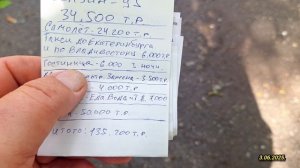 34.500 т.р.
Самолет-24200 т.р.
Такси до Екатеринбурга
и по Владивостоку 6.000 т.р.
Гостиница-6.000 3 ночи.
Замена-3500
- 4.000 т.р.
Еда 7000
50.000 т.р.
Итого: 135.200 т.р.
3.06.2025